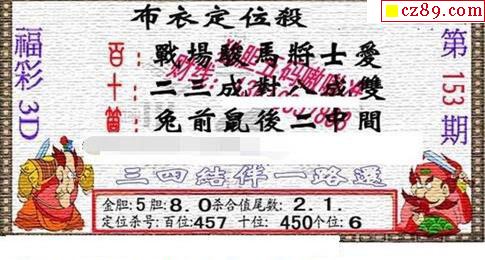 cz89.com
布衣定位殺
福彩3D
第153期
百:戰場駿馬將士愛
十:二三成對六成雙
箇:兔前鼠後二中間
三四結伴一路選
金胆:5胆:8.0杀合值尾数:2.1.
定位杀号:百位:457 十位:450个位:6